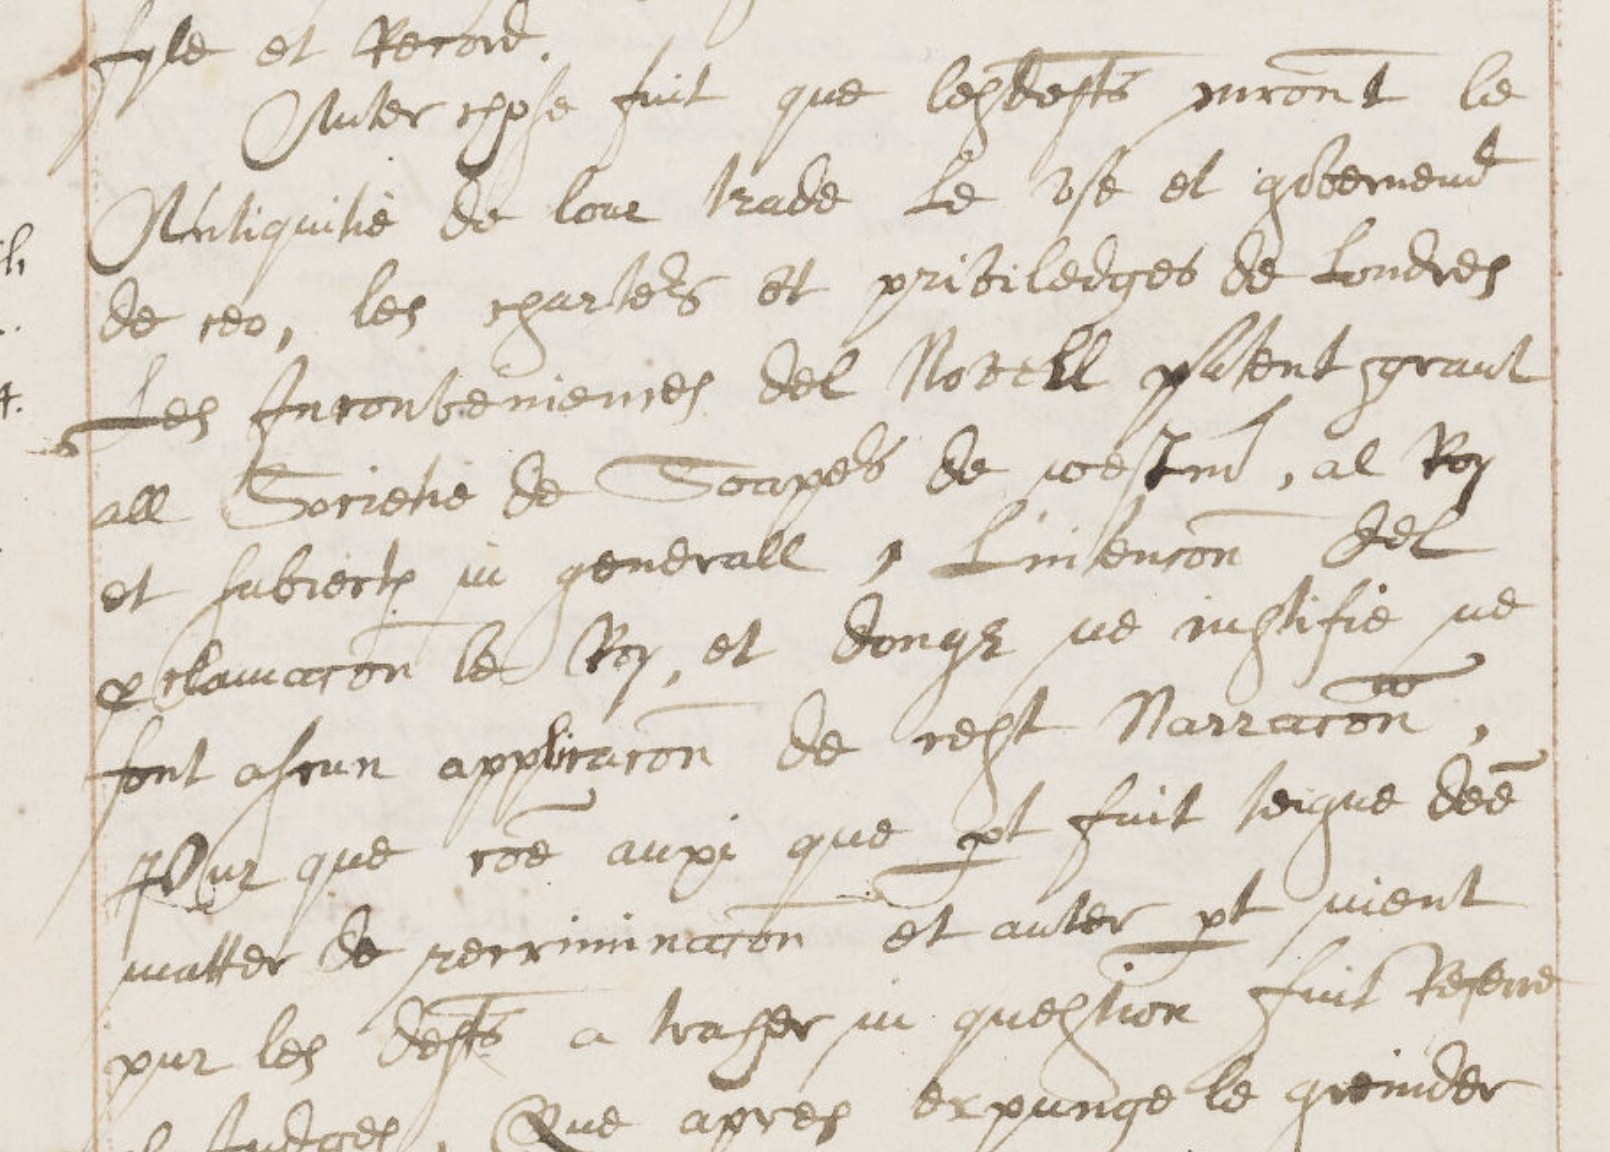 fyle et Record.
Auter chose fuit que les defts mront le
Antiquitie de lour trade Le vse et governemt
de ceo, les charters et priviledges de Londres
Les Inconveniences del Novell patent graunt
all Societie de Soapers de westmr, al Roy
et subiects in generall, L'intencon del
proclamacon le Roy, et donqr ne iustifie ne
font ascun applicacon de cest Narracon,
Pur que coe auxi que pt fuit teigne dee
matter de recriminacon et auter pt nient
pur les defts a traher in question fuit Referre
Judges, Que apres expunge le greinder